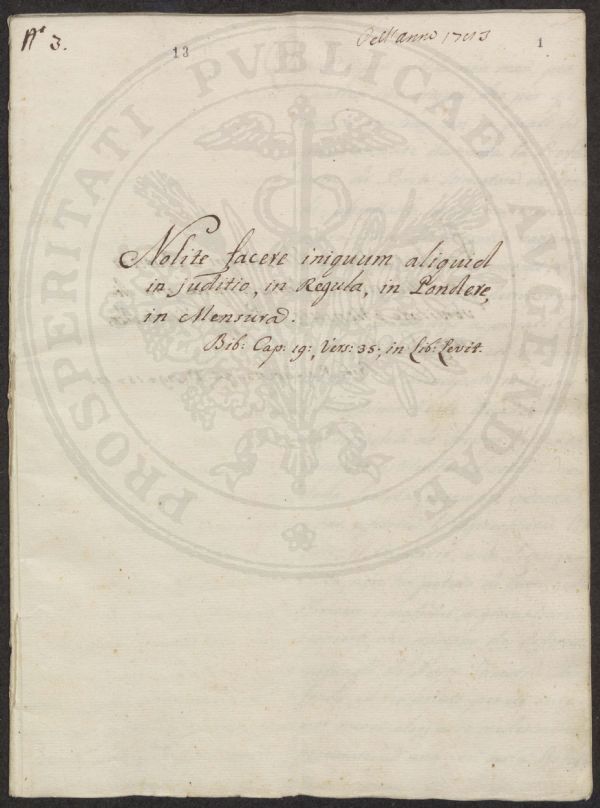 N.º 3.
13
Dell'anno
1
Nolite facere iniquum aliquid
in juditio, in Regula, in Pondere,
in Mensura.
Bib: Cap: 19:, Vers: 35:, in Lib: Levit.
PROSPERITATI PVBLICAE AVGENDAE